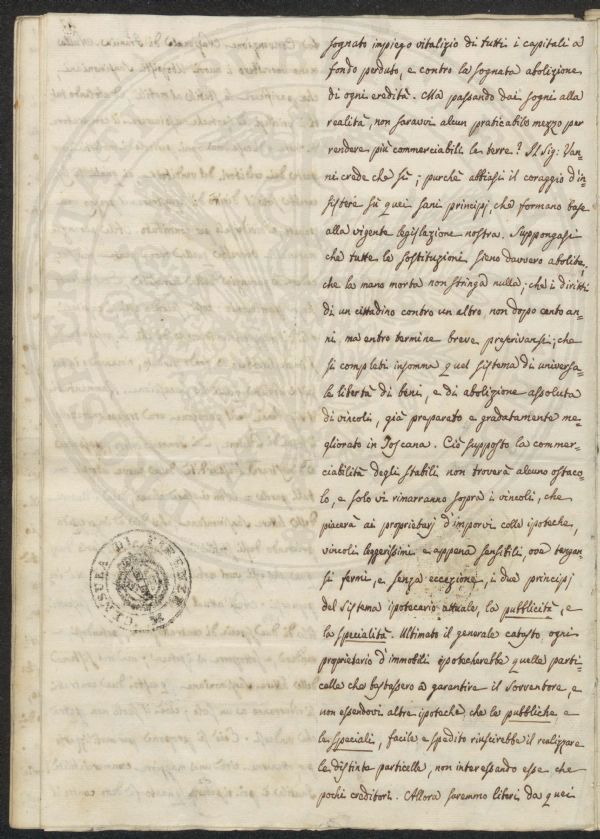 sognato impiego vitalizio di tutti i capitali a
fondo perduto, e contro la sognata abolizione
di ogni eredità. Ma passando dai sogni alla
realtà, non saravvi alcun praticabile mezzo per
rendere più commerciabili le terre? Il Sig: Van-
ni crede che sì; purchè abbiasi il coraggio d'in-
sistere sù quei sani principj, che formano base
alla vigente legislazione nostra. Suppongasi
che tutte le sostituzioni sieno davvero abolite,
che la mano morta non stringa nulla; che i diritti
di un cittadino contro un altro non dopo cento an-
ni ma entro termine breve prescrivansi; che
si completi insomma quel sistema di universa-
le libertà di beni, e di abolizione assoluta
di vincoli, già preparato e gradatamente me-
gliorato in Toscana. Ciò supposto la commer-
ciabilità degli stabili non troverà alcuno ostaco-
lo, e solo vi rimarranno sopra i vincoli, che
piacerà ai proprietarj d'imporvi colle ipoteche,
vincoli leggerissimi e appena sensibili, ove tengan-
si fermi, e senza eccezione, i due principj
del sistema ipotecario attuale, la pubblicità, e
la specialità. Ultimato il generale catasto, ogni
proprietario d'immobili ipotecherebbe quelle parti-
celle che bastassero a garantire il Sovventore, e
non essendovi altre ipoteche che le pubbliche e
le speciali, facile e spedito riuscirebbe il realizzare
le distinte particelle, non interessando esse che
pochi creditori. Allora saremmo liberi da quei
CENSURA DI FIRENZE